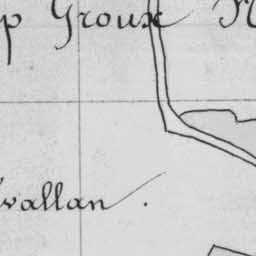 p Groux N
vallan.